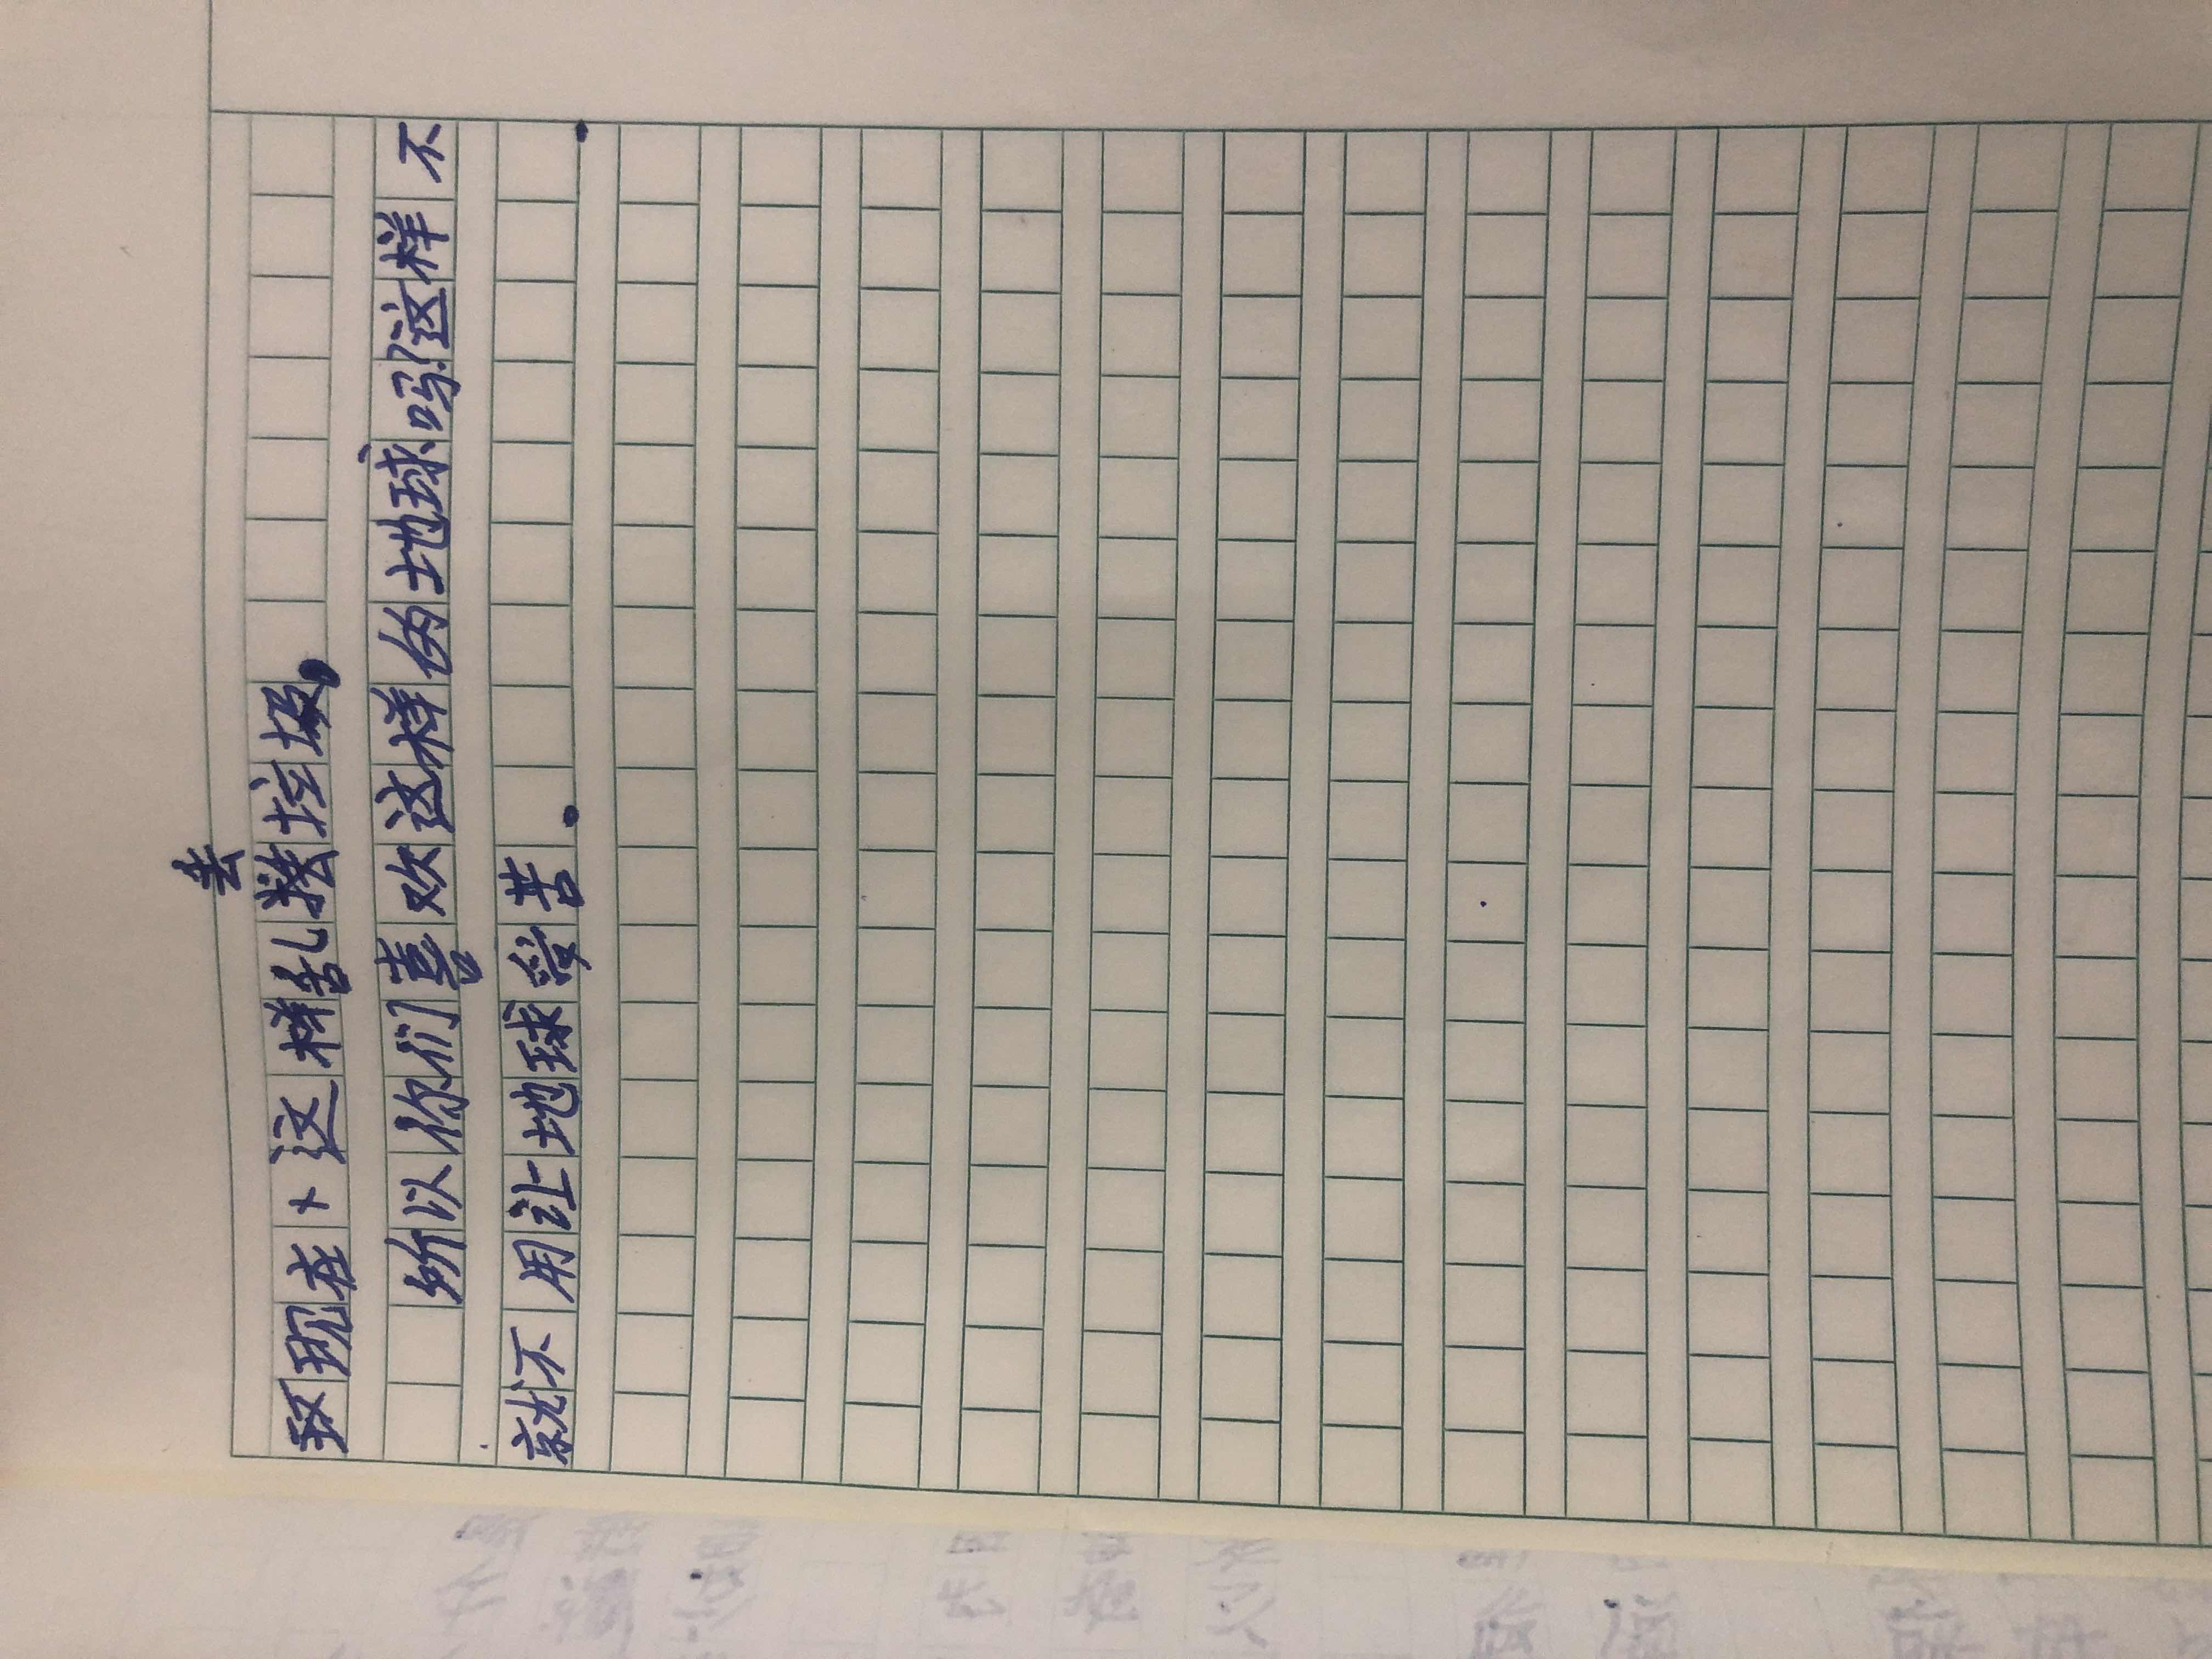 现在这样乱丢垃圾。
所以你们喜欢这样的地球吗?这样不
就不用让地球受苦。